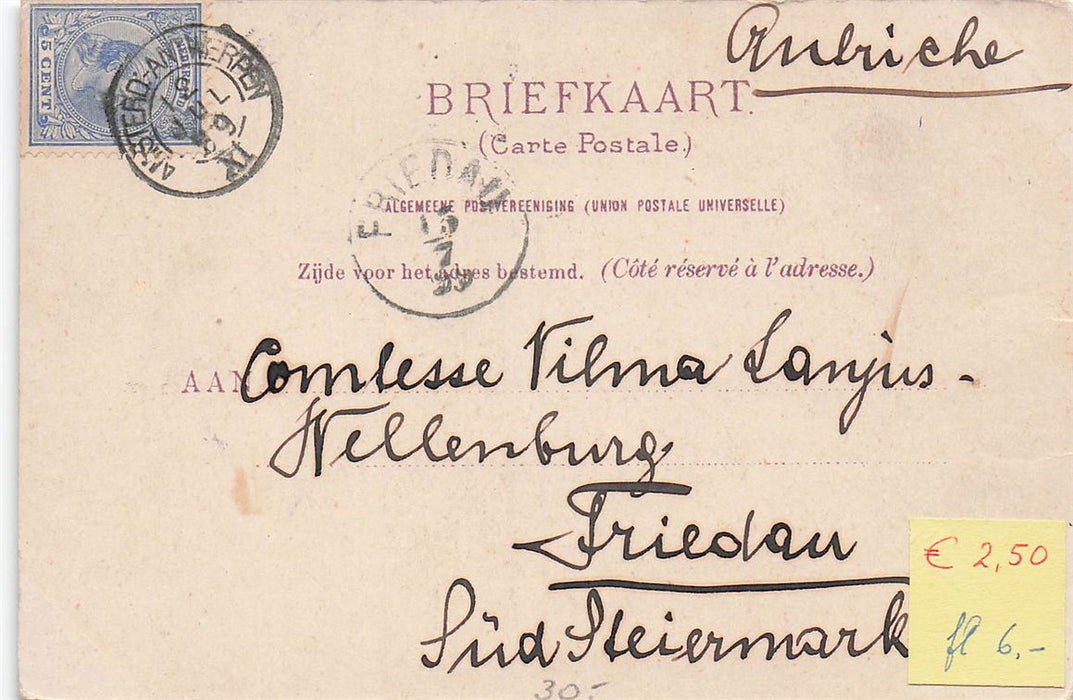 5 CENT
NEDERLAND
AMSTERD-ANTWERPEN
IX
Autriche
BRIEFKAART.
(Carte Postale.)
FRIEDAU
ALGEMEENE POSTVEREENIGING (UNION POSTALE UNIVERSELLE)
13
7
99
Zijde voor het adres bestemd. (Côté réservé à l'adresse.)
AAN Comtesse Vilma Lanjus-
Wellenburg
Friedau
Süd Steiermark
€ 2,50
fl 6,-
30.-